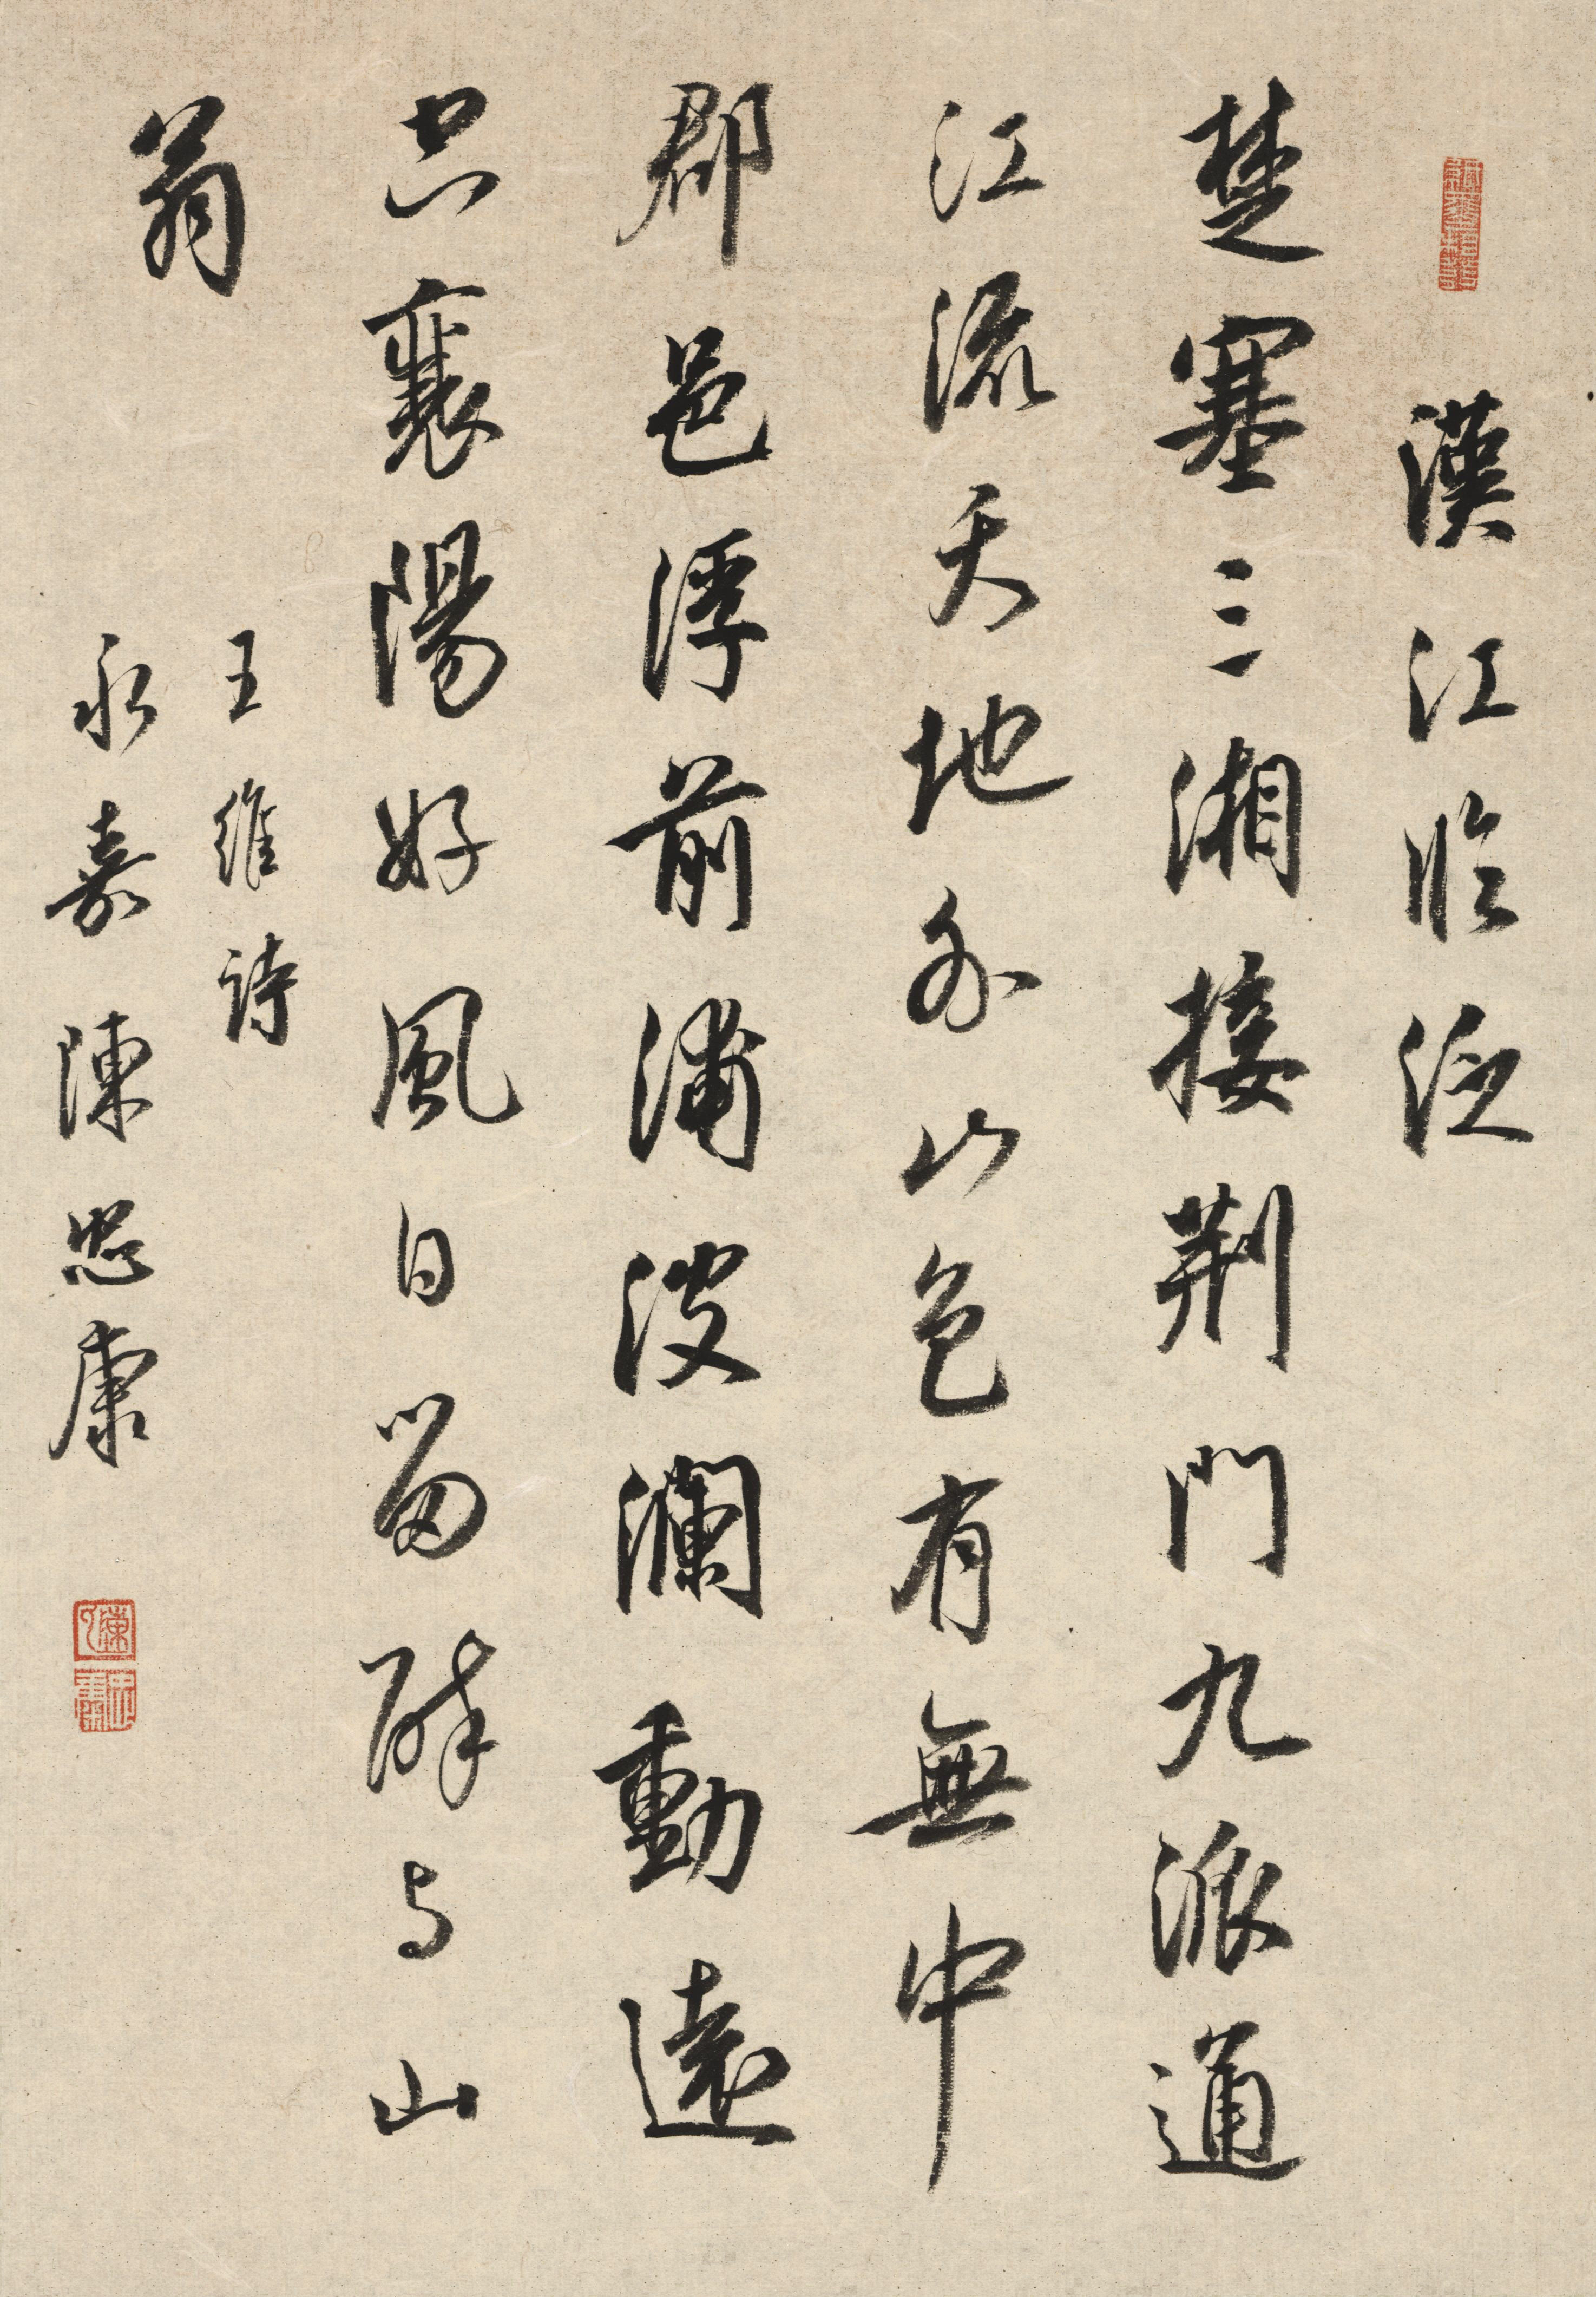 漢江臨泛
楚塞三湘接荆門九派通
江流天地外山色有無中
郡邑浮前浦波瀾動遠
空襄陽好風日留醉与山
翁
王維詩
永嘉陳忠康